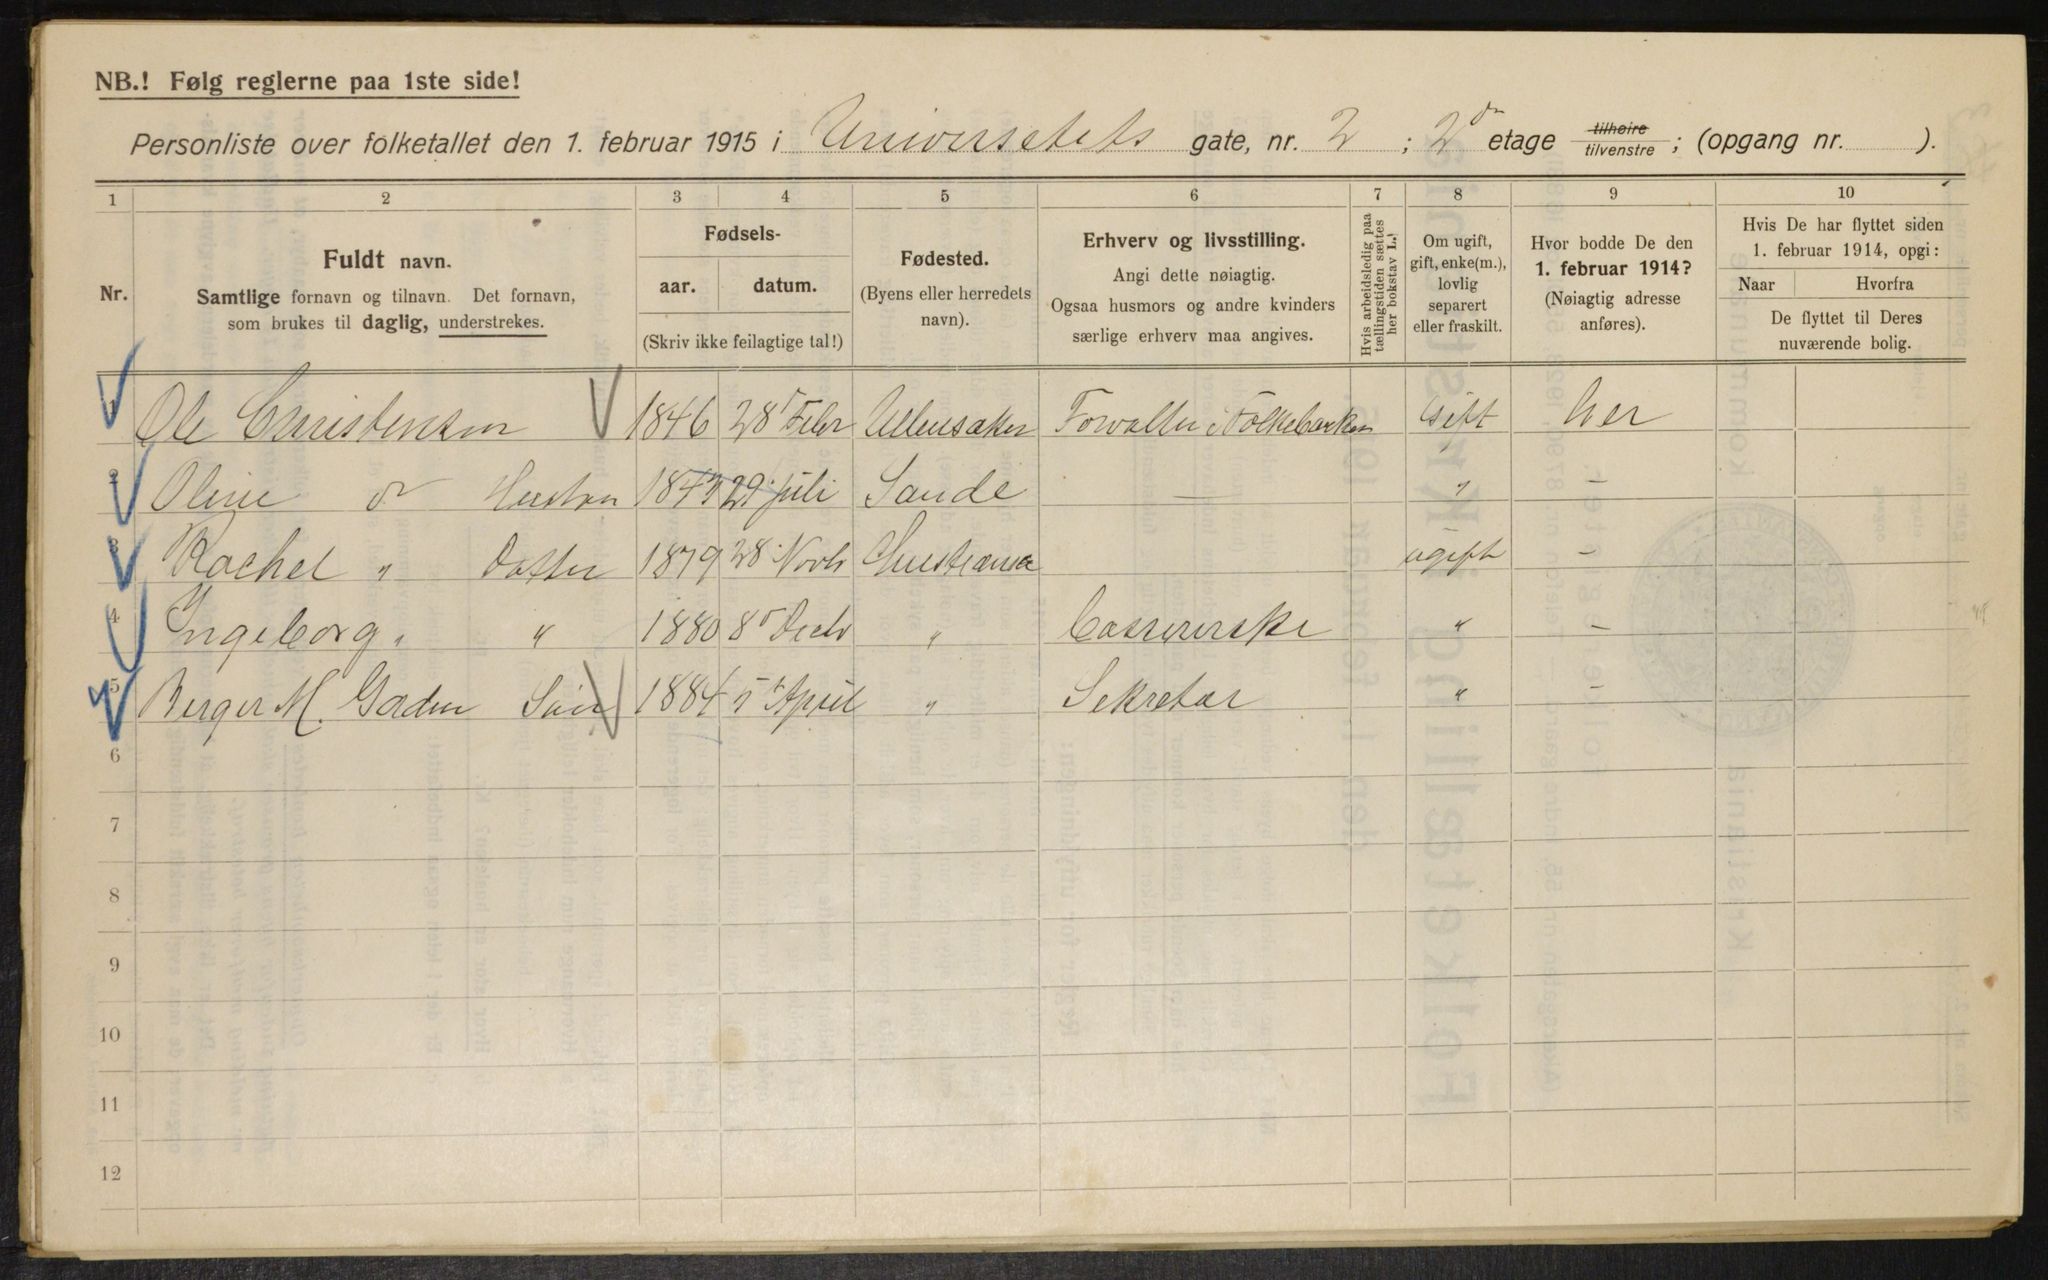 NB.! Følg reglerne paa 1ste side!
Personliste over folketallet den 1. februar 1915 i Universitets gate, nr. 2 ; 2den etage tilhøire tilvenstre ; (opgang nr. ).
1 2 3 4 5 6 7 8 9 10
Nr.
Fuldt navn.
Samtlige fornavn og tilnavn. Det fornavn,
som brukes til daglig, understrekes.
Fødsels-
aar. datum.
(Skriv ikke feilagtige tal!)
Fødested.
(Byens eller herredets
navn).
Erhverv og livsstilling.
Angi dette nøiagtig.
Ogsaa husmors og andre kvinders
særlige erhverv maa angives.
Hvis arbeidsledig paa
tællingstiden sættes
her bokstav L.
Om ugift,
gift, enke(m.),
lovlig
separert
eller fraskilt.
Hvor bodde De den
1. februar 1914?
(Nøiagtig adresse
anføres).
Hvis De har flyttet siden
1. februar 1914, opgi:
Naar Hvorfra
De flyttet til Deres
nuværende bolig.
1 Ole Christensen 1846 28 Febr Ullensaker Forvalter i Folkebanken Gift her
2 Oline Hustru 29 juli Sande — " -
3 Rachel " Datter 1879 28 Novb Christiania ugift -
4 Ingeborg " " 1880 8 Decb " Cassererske " -
5 Berger M. Gaden Søn 1884 5 April " Sekretær " -
6
7
8
9
10
11
12